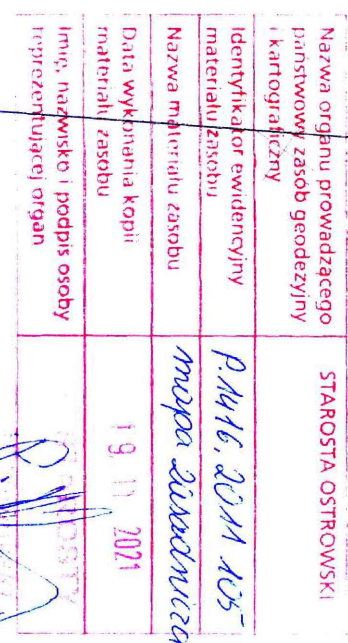 Nazwa organu prowadzącego
państwowy zasób geodezyjny
i kartograficzny
STAROSTA OSTROWSKI
Identyfikator ewidencyjny
materiału zasobu
P.1416.2011.105
Nazwa materiału zasobu
mapa zasadnicza
Data wykonania kopii
materiału zasobu
19 11 2021
Imię, nazwisko i podpis osoby
reprezentującej organ
STAROSTY